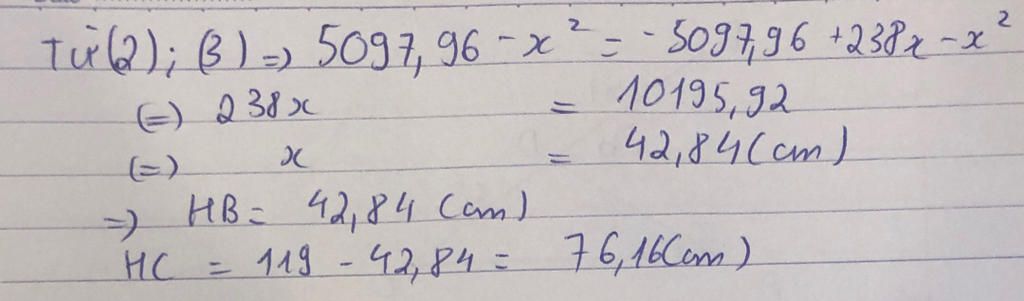 Từ (2); (3) => 5097,96 - x² = -5097,96 + 238x - x²
(=) 238x = 10195,92
(=) x = 42,84 (cm)
=) HB = 42,84 (cm)
HC = 119 - 42,84 = 76,16 (cm)